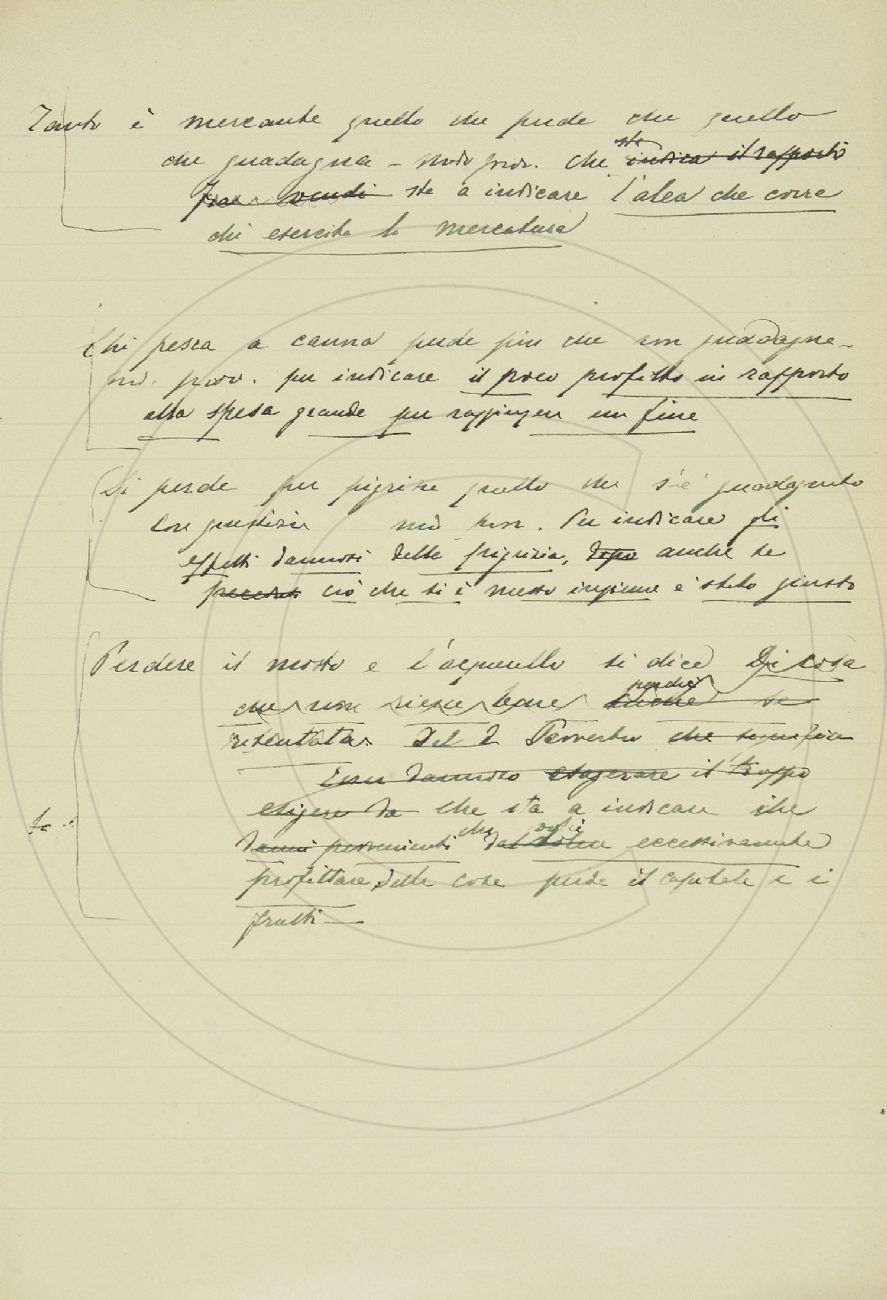 Tanto è mercante quello che perde che quello
che guadagna – modo prov. che sta indica il rapporto
sta a indicare l'alea che corre
chi esercita la mercatura
Chi pesca a canna perde più che non guadagna –
prov. per indicare il poco profitto in rapporto
alla spesa grande per raggiungere un fine
Si perde per pigrizia quello che s'è guadagnato
con giustizia mo. prov. Per indicare gli
effetti dannosi della pigrizia, dopo anche se
ciò che si è messo insieme è stato giusto
Perdere il mosto e l'acquerello si dice Di cosa
che non riesce bene perchè anche se
Del Proverbio che significa
Esser dannoso esagerare il troppo
esigere da che sta a indicare che
danni provenienti che dal voler eccessivamente
profittare delle cose perde il capitale e i
frutti –